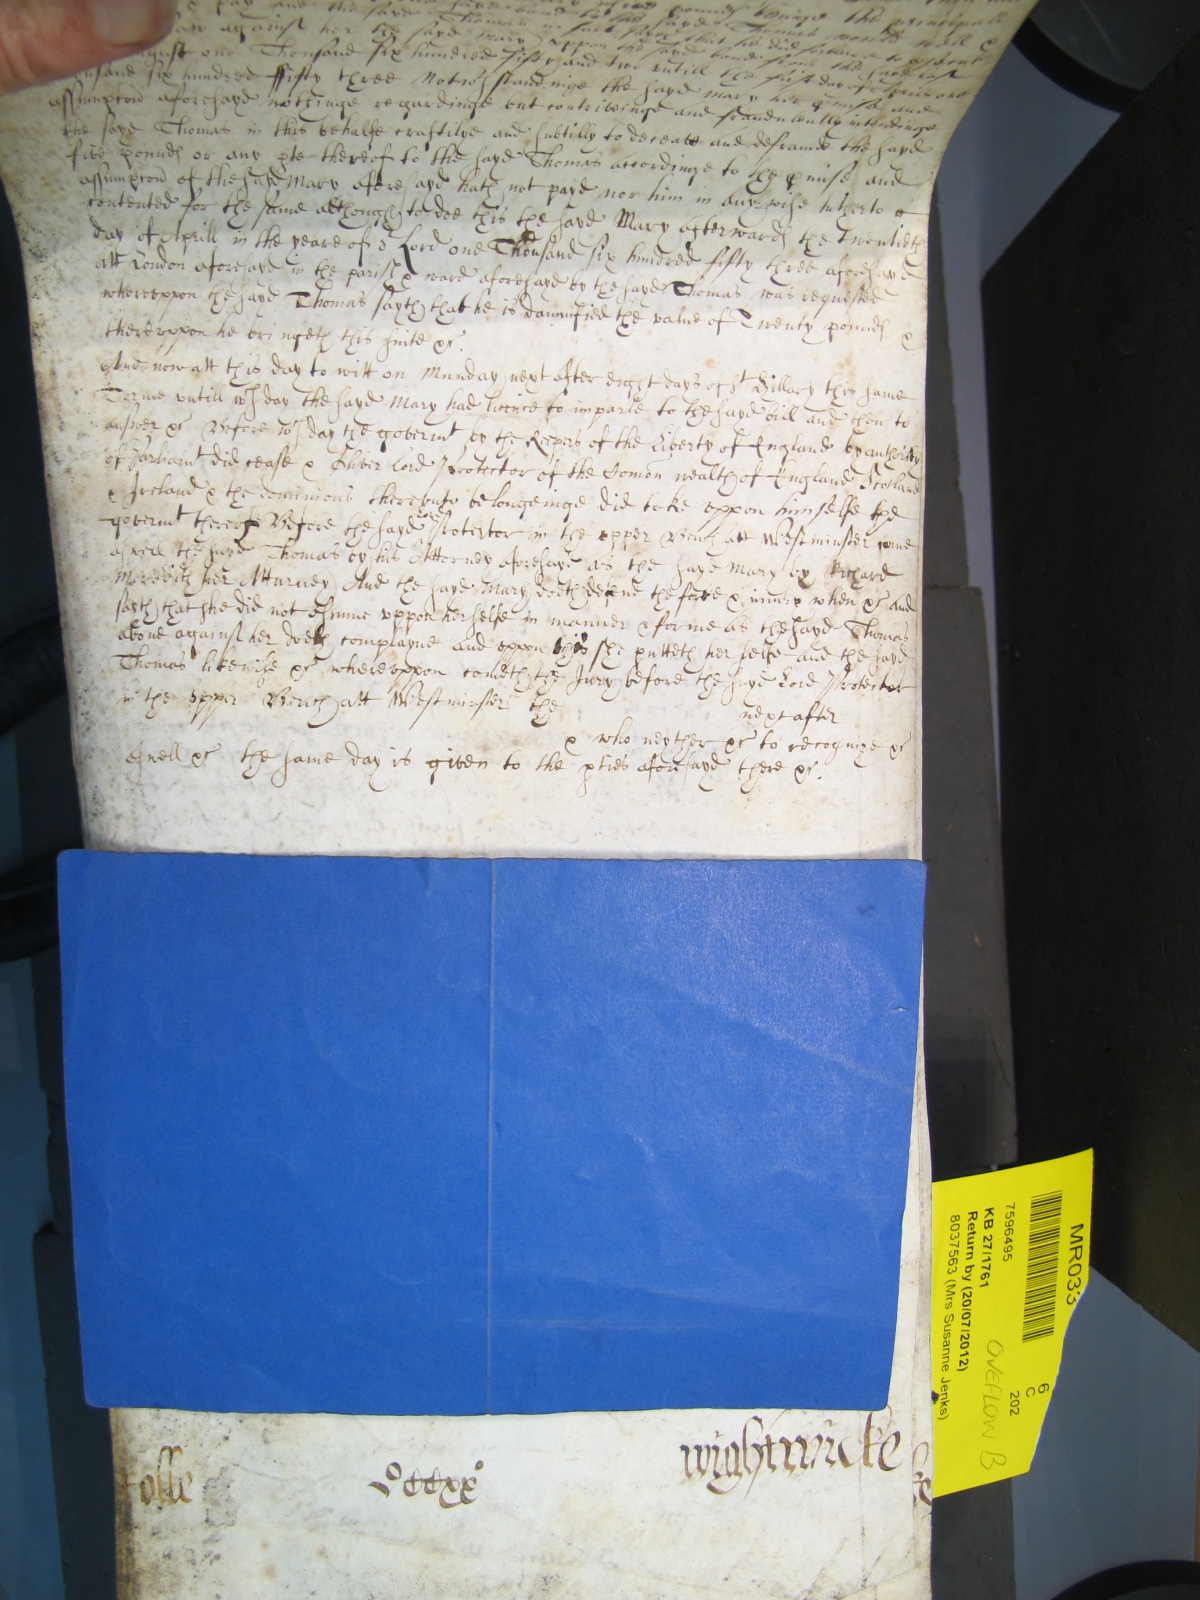 & pay and the sayd Thomas
against her the sayd Mary uppon the sayd bond from the
August one Thousand six hundred fifty and two untill the first day of
thousand six hundred ffifty three Notwthstandinge the sayd Mary her pmise and
assumpcon aforesayd nothinge regardinge but contriveinge and fraudulently intendinge
the sayd Thomas in this behalfe craftilye and subtilly to deceave and defraude the sayd
five pounds or any pte thereof to the sayd Thomas accordinge to the pmise and
assumpcon of the sayd Mary aforesayd hath not payd nor him in any wise hitherto
contented for the same although to doe this the sayd Mary afterwards the Twentieth
day of Aprill in the yeare of or Lord one Thousand six hundred fifty three aforesayd
att London aforesayd in the parish & ward aforesayd by the sayd Thomas was requested
whereuppon the sayd Thomas sayth that he is damnified the value of Twenty pounds &
thereuppon he bringeth this suite &c.
And now att this day to witt on Munday next after eight days of St Hillary this same
Terme untill wch day the sayd Mary had licence to imparle to the sayd bill and then to
answer &c Before wch day the govermt by the Keepers of the Liberty of England by authority
of Parliamt did cease & Oliver Lord Protector of the Comon wealth of England Scotland
& Ireland & the dominions thereunto belongeinge did take uppon himselfe the
govermt thereof Before the sayd Lord Protector in the upper Bench att Westminster come
aswell the sayd Thomas by his Attorney aforesayd as the sayd Mary by Richard
Meredith her Atturney And the sayd Mary doth defend the force & iniury when &c And
sayth that she did not assume uppon herselfe in manner & forme as the sayd Thomas
above against her doeth complayne and uppon this she putteth her selfe and the sayd
Thomas likewise &c whereuppon cometh the Jury before the sayd Lord Protector
in the upper Bench att Westminster the next after
& who neyther &c to recognize &c
aswell &c the same day is given to the pties aforesayd there &c.
wightwicke
MR033
7596495
KB 27/1761
Return by (20/07/2012)
8037563 (Mrs Susanne Jenks)
6
C
202
OVEFLOW B